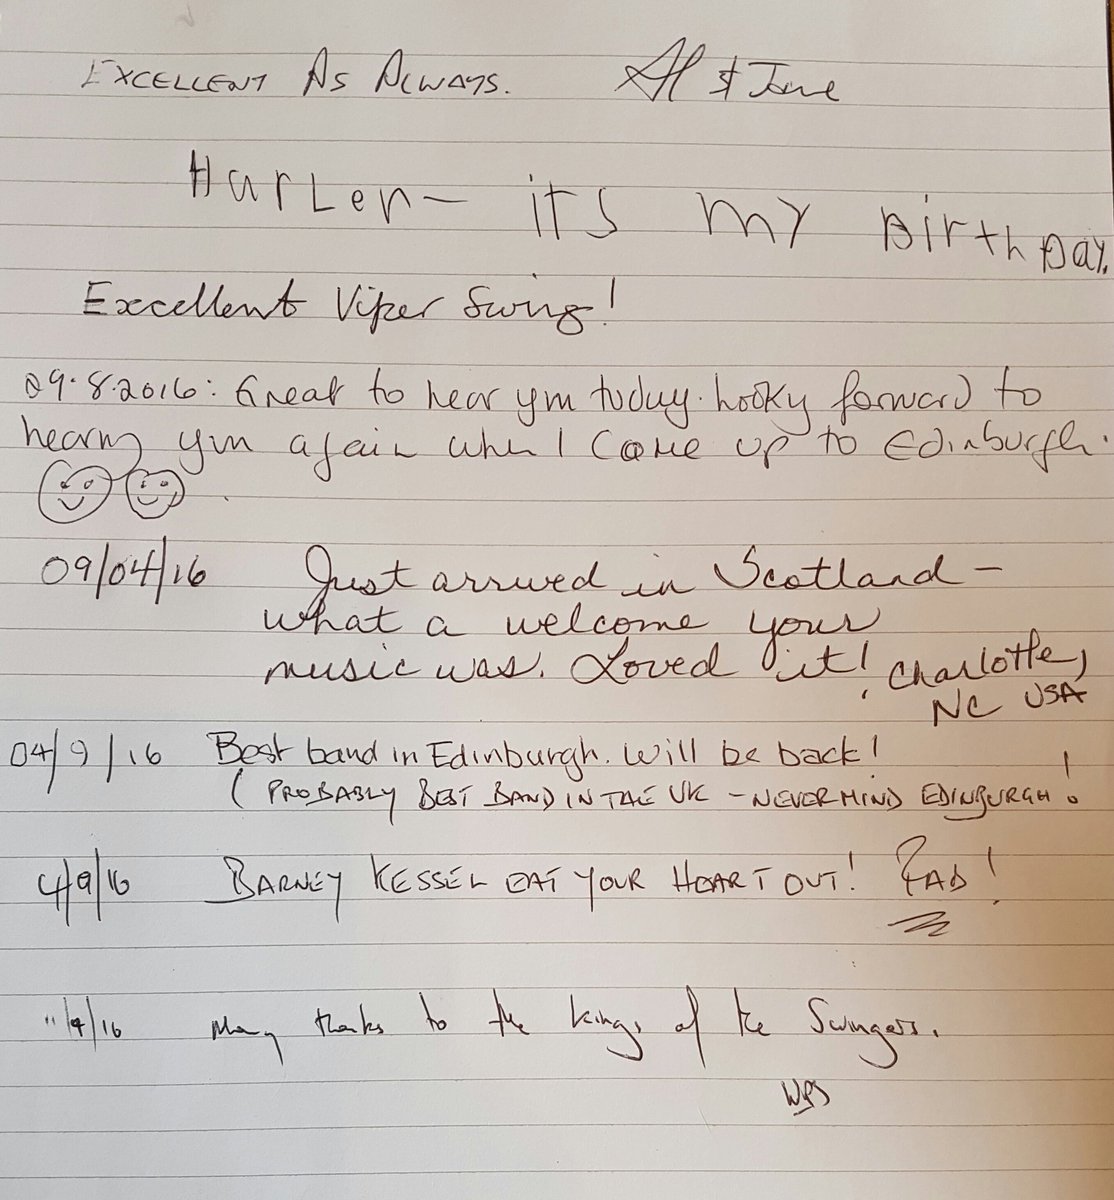 EXCELLENT AS ALWAYS. Al & Jane
HarLen- iTs my BirthDay.
Excellent Viper Swing!
09.8.2016: Great to hear you today. looking forward to
hearing you again when I come up to Edinburgh.
09/04/16 Just arrived in Scotland -
what a welcome your
music was. Loved it! Charlotte,
NC USA
04/9/16 Best band in Edinburgh. Will be back!
(PROBABLY BEST BAND IN THE UK - NEVER MIND EDINBURGH!
4/9/16 BARNEY KESSEL EAT YOUR HEART OUT! FAB!
11/9/16 Many thanks to the kings of the Swingers.
WPS